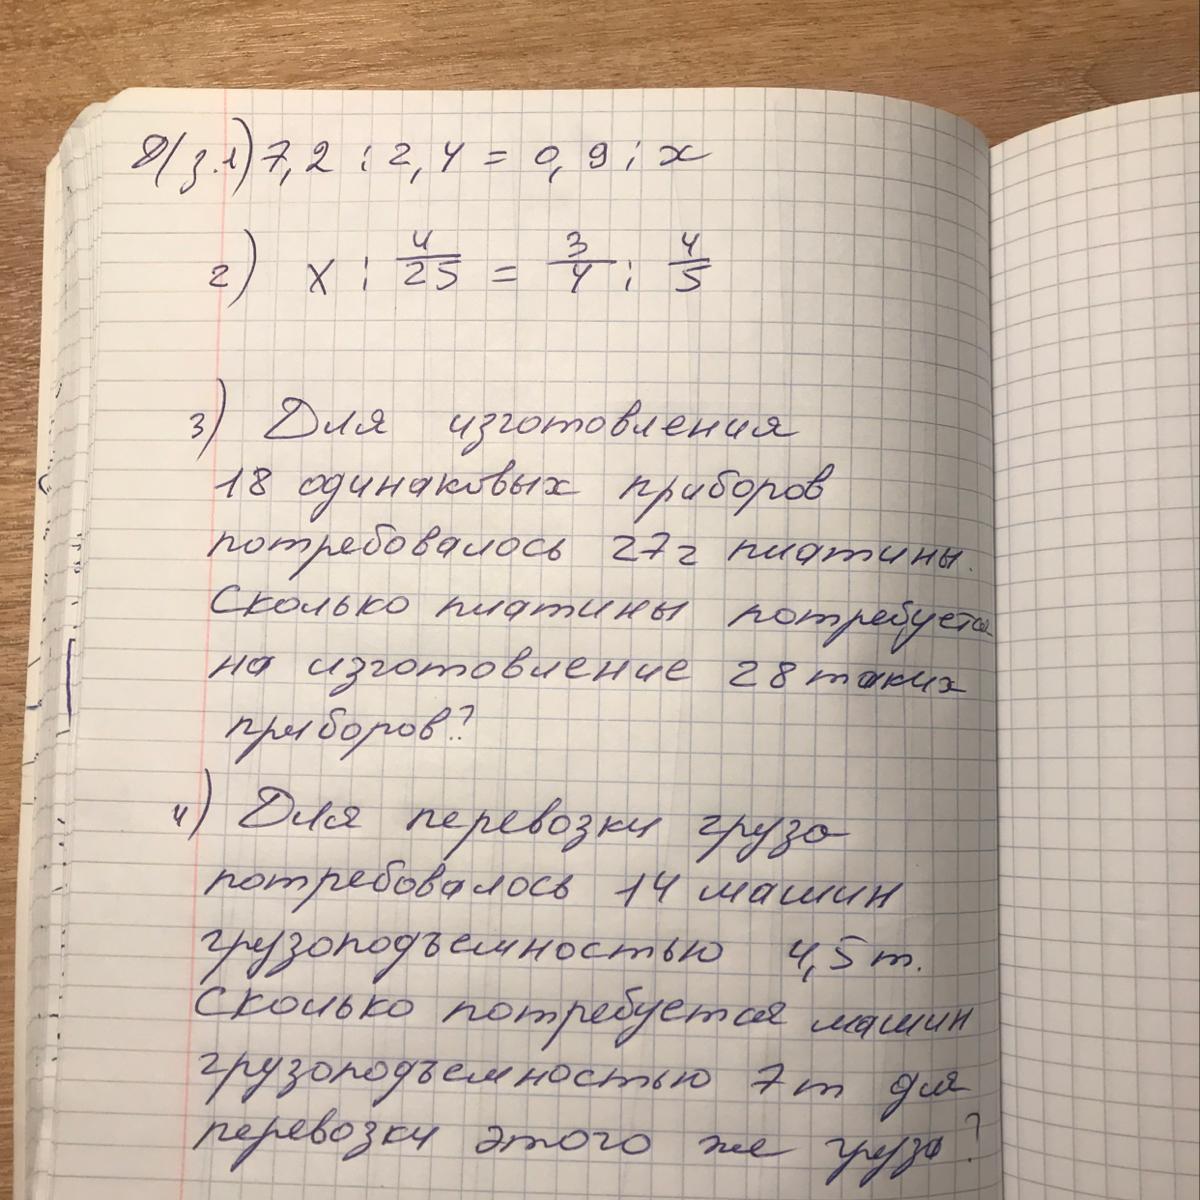 Д/з. 1) 7,2 : 2,4 = 0,9 : x
2) x : 4/25 = 3/4 : 4/5
3) Для изготовления
18 одинаковых приборов
потребовалось 27 г платины.
Сколько платины потребуется
на изготовление 28 таких
приборов?
4) Для перевозки груза
потребовалось 14 машин
грузоподъемностью 4,5 т.
Сколько потребуется машин
грузоподъемностью 7 т для
перевозки этого же груза?